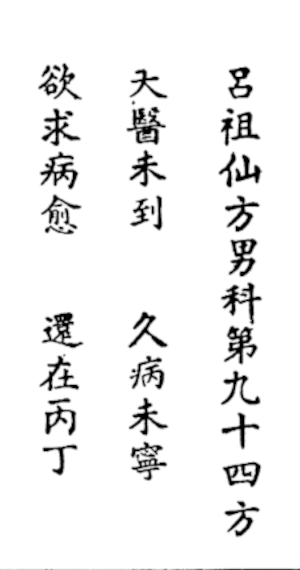 呂祖仙方男科第九十四方
天醫未到　久病未寧
欲求病愈　還在丙丁